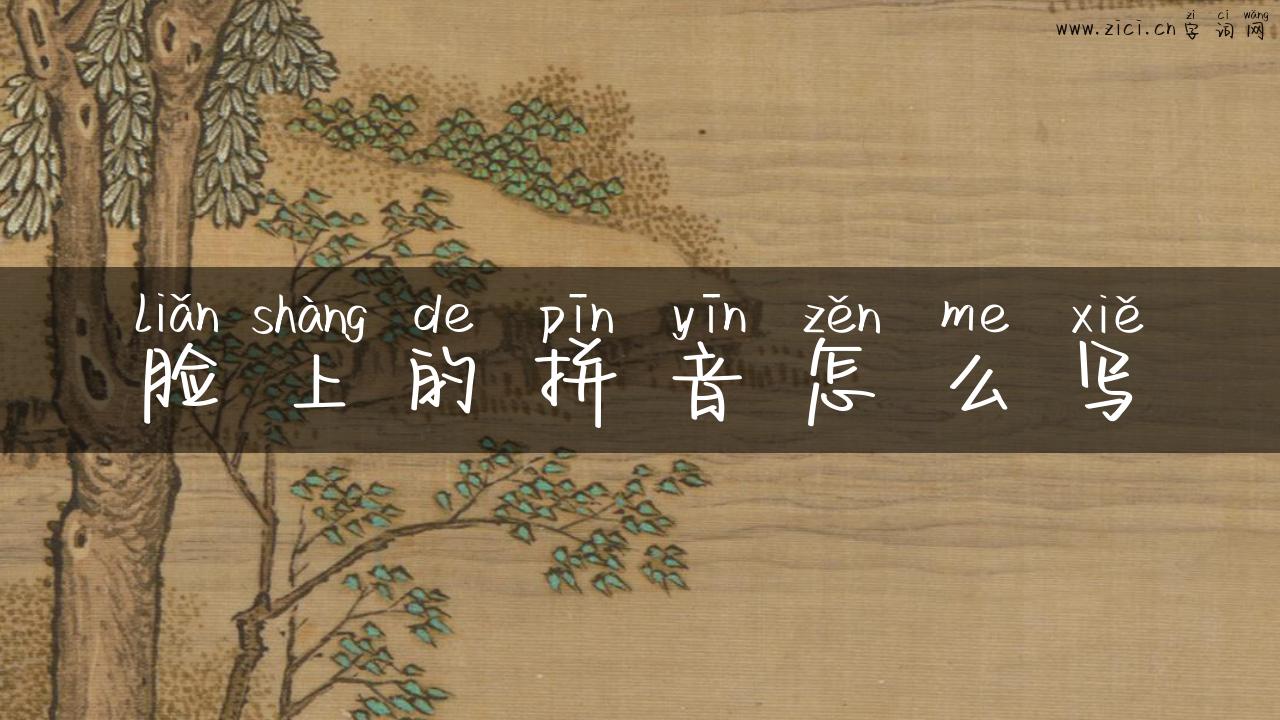 zì cí wǎng
www.zici.cn 字词网
liǎn shàng de pīn yīn zěn me xiě
脸上的拼音怎么写